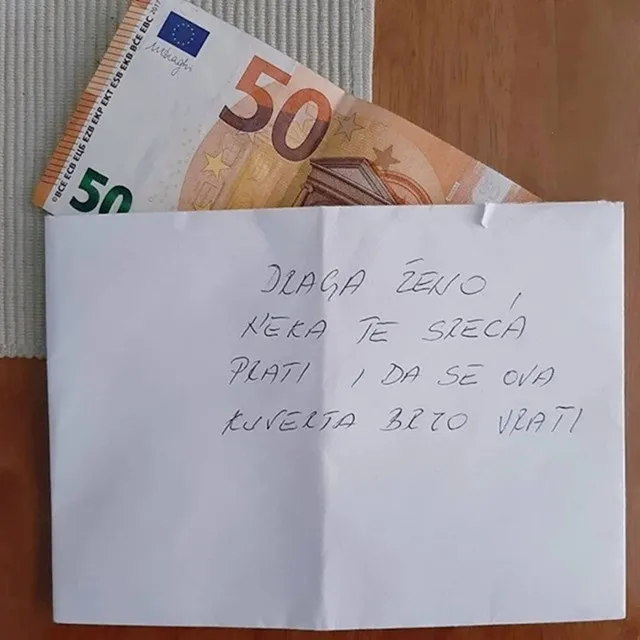 ©BCE ECB ЕЦБ EZB EKP EKT ESB EKB BĊE EBC 2017
50
50
DRAGA ŽENO,
NEKA TE SREĆA
PRATI I DA SE OVA
KUVERTA BRZO VRATI